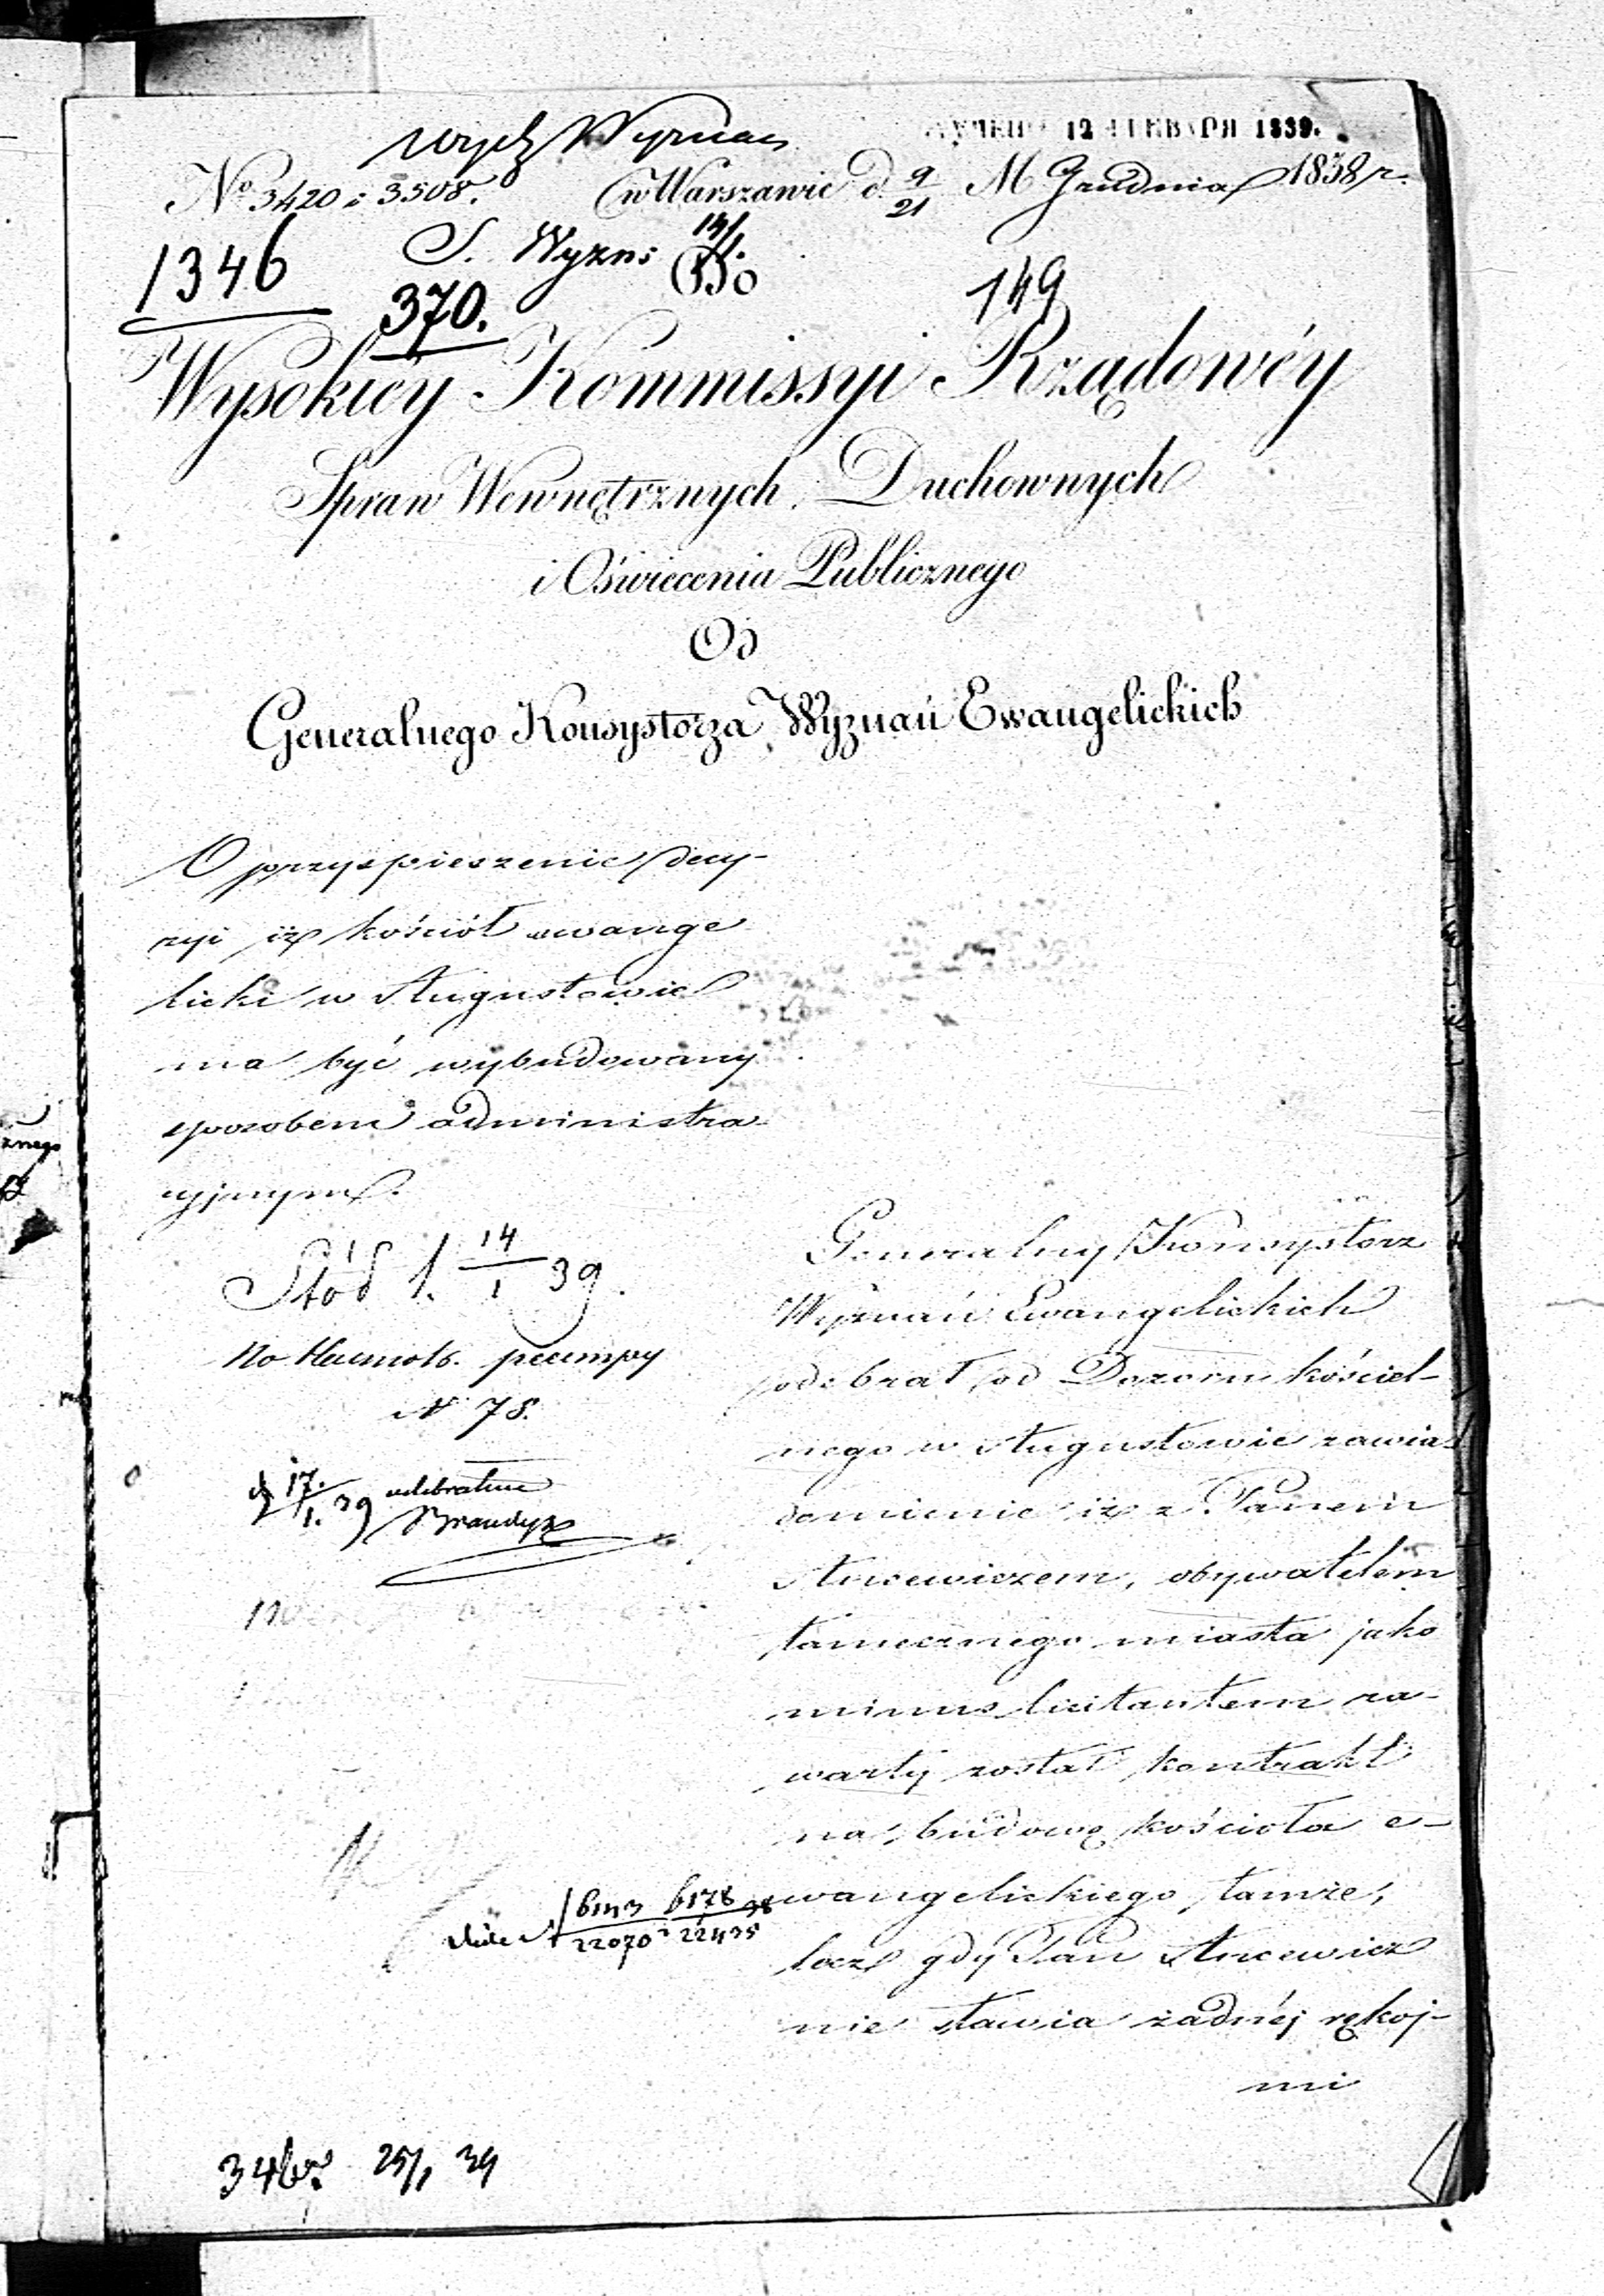 12 ЯНВАРЯ 1839.
Wydz Wyznań
No 3420 i 3508. w Warszawie d. 9/21 M Grudnia 1838 r.
1346 S. Wyzn: 14/1.
370. 149
Wysokiéy Kommissyi Rządowéy
Spraw Wewnętrznych, Duchownych
i Oświecenia Publicznego
Od
Generalnego Konsystorza Wyznań Ewangelickich
O przyspieszenie decy-
zyi iż kościół ewange
licki w Augustowie
ma być wybudowany
sposobem administra
cyjnym.
14/1 39.
N 78.
17./1. 39 odebrałem
Generalny Konsystorz
Wyznań Ewangelickich
odebrał od Dozoru kościel-
nego w Augustowie zawia
domienie iż z Panem
Ancewiczem, obywatelem
tamecznego miasta jako
minus licitantem za-
warty został kontrakt
na budowę kościoła e-
wangelickiego tamże,
lecz gdy Pan Ancewicz
nie stawia żadnéj rękoj-
mi
6143/22070 6178/22435 38
25/1 39